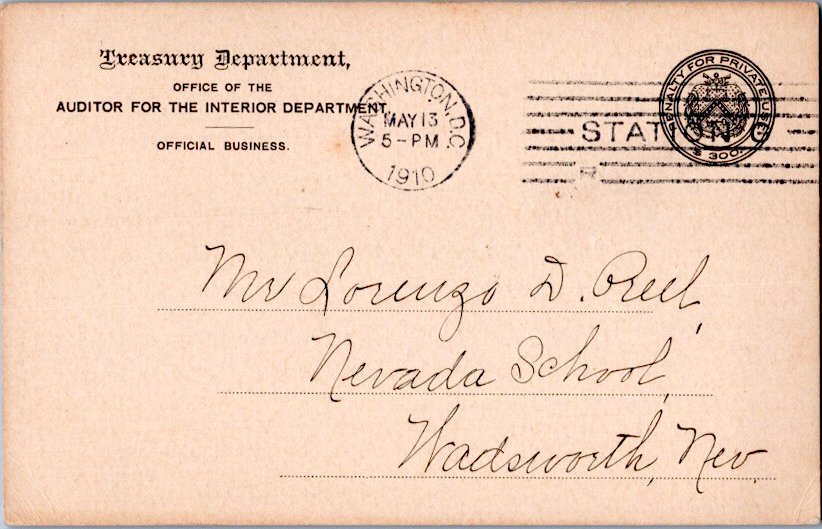 Treasury Department,
OFFICE OF THE
AUDITOR FOR THE INTERIOR DEPARTMENT.
OFFICIAL BUSINESS.
WASHINGTON, D.C.
MAY 13
5-PM
1910
STATION G
PENALTY FOR PRIVATE USE
$ 300.
Mr Lorenzo D. Reel,
Nevada School,
Wadsworth, Nev.